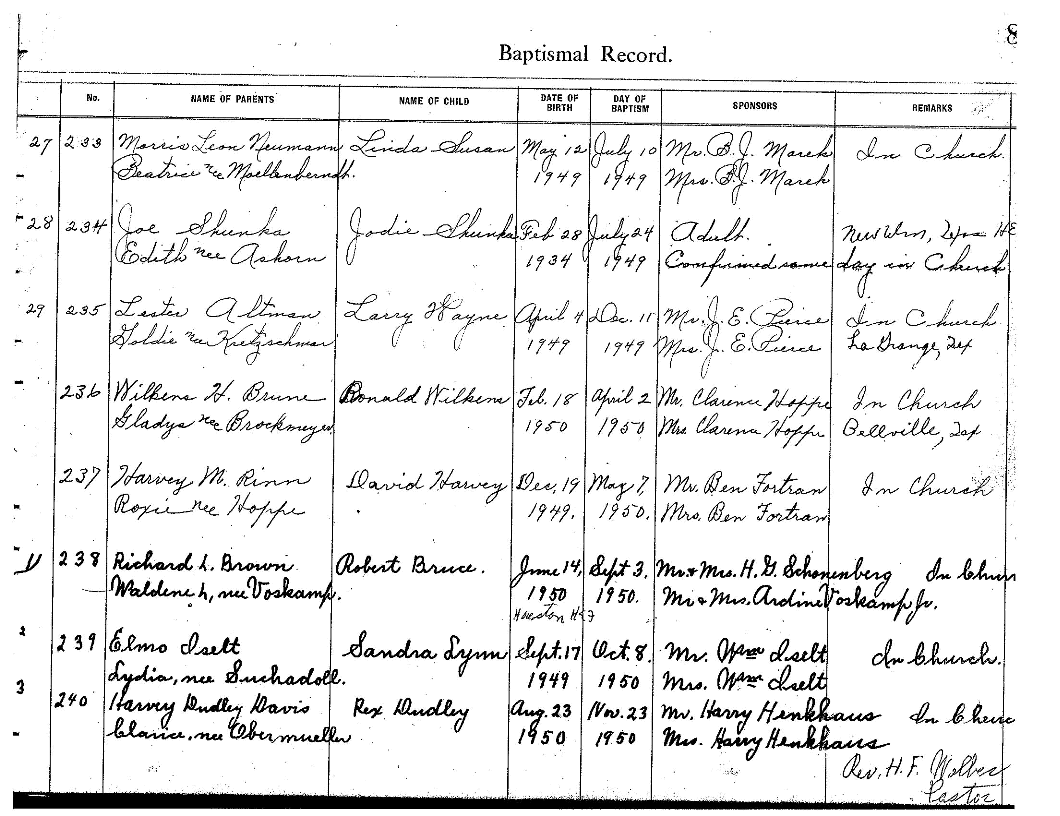 8
Baptismal Record.
No. NAME OF PARENTS NAME OF CHILD DATE OF BIRTH DAY OF BAPTISM SPONSORS REMARKS
27 233 Morris Leon Neumann Linda Susan May 12 July 10 Mr. B.J. Marek In Church
Beatrice nee Moellenberndt. 1949 1949 Mrs. B.J. Marek
28 234 Joe Shunka Jodie Shunka Feb 28 July 24 Adult. New Ulm, Texas
Edith nee Ashorn 1934 1949 Confirmed same day in Church
29 235 Lester Altman Larry Wayne April 4 Dec. 11 Mr. J. E. Pierce In Church
Goldie nee Kretzschmar 1949 1949 Mrs. J. E. Pierce La Grange, Tex
236 Wilkens H. Brune Ronald Wilkens Feb. 18 April 2 Mr. Clarence Hoppe In Church
Gladys nee Brockmeyer 1950 1950 Mrs Clarence Hoppe Bellville, Tex
237 Harvey M. Rinn David Harvey Dec, 19 May 7, Mr. Ben Fortran In Church
Roxie nee Hoppe 1949. 1950. Mrs. Ben Fortran
238 Richard L. Brown Robert Bruce. June 14, Sept 3. Mr & Mrs. H. G. Schonenberg In Chur
Waldene L, nee Voskamp. 1950 1950. Mr & Mrs. Ardine Voskamp Jr.
Houston
2 239 Elmo Iselt Sandra Lynn Sept. 17 Oct. 8. Mr. Wm Iselt In Church.
Lydia, nee Suchadoll. 1949 1950 Mrs. Wm Iselt
3 240 Harvey Dudley Davis Rex Dudley Aug. 23 Nov. 23 Mr. Harry Henkhaus In Churc
Clarice, nee Obermueller 1950 1950 Mrs. Harry Henkhaus
Rev. H. F.
Pastor